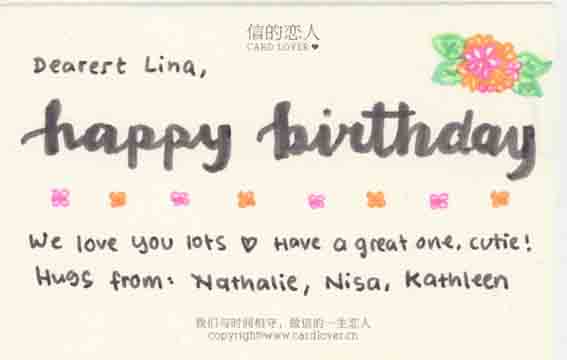 信的恋人
CARD LOVER ♥
Dearest Lina,
happy birthday
We love you lots ♡ Have a great one, cutie!
Hugs from: Nathalie, Nisa, Kathleen
我们与时间相守，做信的一生恋人
copyright©www.cardlover.cn